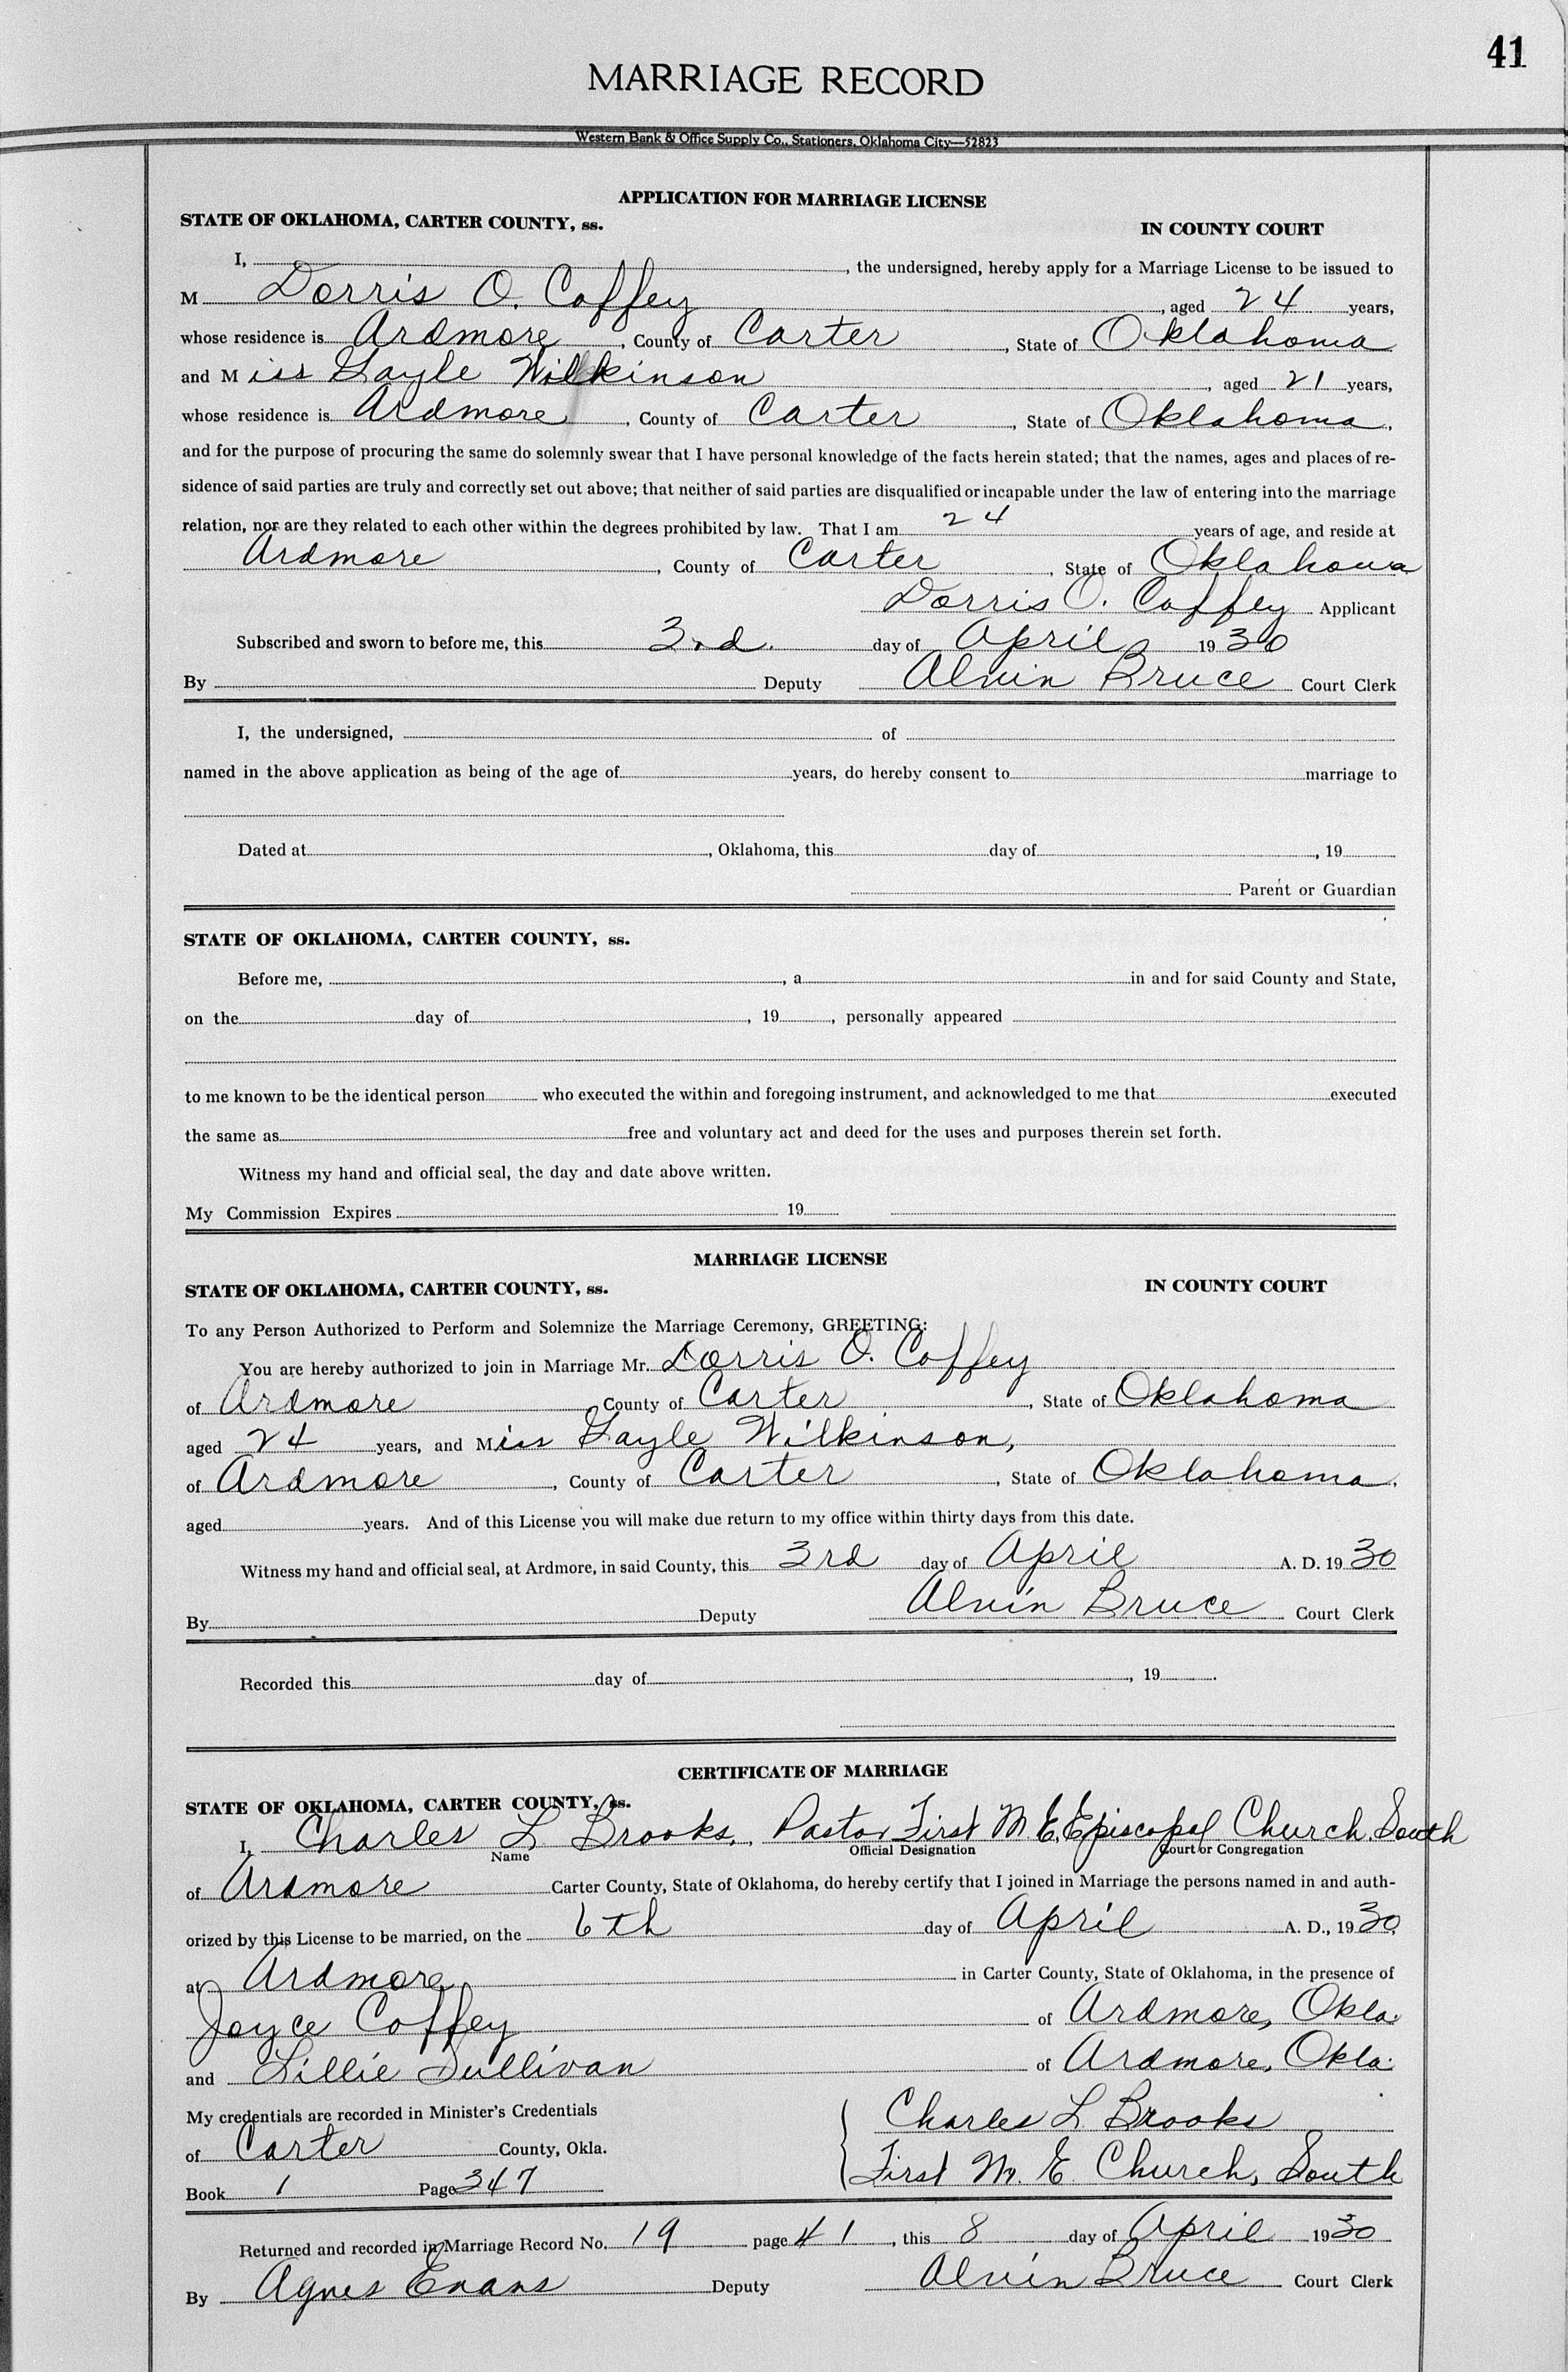 41
MARRIAGE RECORD
Western Bank & Office Supply Co., Stationers, Oklahoma City—52823
APPLICATION FOR MARRIAGE LICENSE
STATE OF OKLAHOMA, CARTER COUNTY, ss. IN COUNTY COURT
I, , the undersigned, hereby apply for a Marriage License to be issued to
M Dorris O. Coffey , aged 24 years,
whose residence is Ardmore , County of Carter , State of Oklahoma
and Miss Gayle Wilkinson , aged 21 years,
whose residence is Ardmore , County of Carter , State of Oklahoma.
and for the purpose of procuring the same do solemnly swear that I have personal knowledge of the facts herein stated; that the names, ages and places of re-
sidence of said parties are truly and correctly set out above; that neither of said parties are disqualified or incapable under the law of entering into the marriage
relation, nor are they related to each other within the degrees prohibited by law. That I am 24 years of age, and reside at
Ardmore , County of Carter , State of Oklahoma
Dorris O. Coffey Applicant
Subscribed and sworn to before me, this 3rd. day of April 1930
By Deputy Alvin Bruce Court Clerk
I, the undersigned, of
named in the above application as being of the age of years, do hereby consent to marriage to
Dated at , Oklahoma, this day of , 19
Parent or Guardian
STATE OF OKLAHOMA, CARTER COUNTY, ss.
Before me, , a in and for said County and State,
on the day of , 19 , personally appeared
to me known to be the identical person who executed the within and foregoing instrument, and acknowledged to me that executed
the same as free and voluntary act and deed for the uses and purposes therein set forth.
Witness my hand and official seal, the day and date above written.
My Commission Expires 19
MARRIAGE LICENSE
STATE OF OKLAHOMA, CARTER COUNTY, ss. IN COUNTY COURT
To any Person Authorized to Perform and Solemnize the Marriage Ceremony, GREETING:
You are hereby authorized to join in Marriage Mr. Dorris O. Coffey
of Ardmore County of Carter , State of Oklahoma
aged 24 years, and Miss Gayle Wilkinson,
of Ardmore , County of Carter , State of Oklahoma.
aged years. And of this License you will make due return to my office within thirty days from this date.
Witness my hand and official seal, at Ardmore, in said County, this 3rd day of April A. D. 1930
By Deputy Alvin Bruce Court Clerk
Recorded this day of , 19 .
CERTIFICATE OF MARRIAGE
STATE OF OKLAHOMA, CARTER COUNTY, ss.
I, Charles L Brooks, Pastor First M. E. Episcopal Church South
Name Official Designation Court or Congregation
of Ardmore Carter County, State of Oklahoma, do hereby certify that I joined in Marriage the persons named in and auth-
orized by this License to be married, on the 6th day of April A. D., 1930
at Ardmore in Carter County, State of Oklahoma, in the presence of
Joyce Coffey of Ardmore, Okla.
and Lillie Sullivan of Ardmore, Okla.
My credentials are recorded in Minister's Credentials Charles L Brooks
of Carter County, Okla. First M. E Church, South
Book 1 Page 347
Returned and recorded in Marriage Record No. 19 page 41 , this 8 day of April 1930
By Agnes Evans Deputy Alvin Bruce Court Clerk